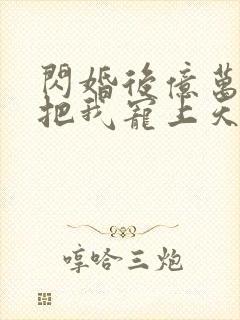 閃婚後億萬
把我寵上天
哼哈三炮